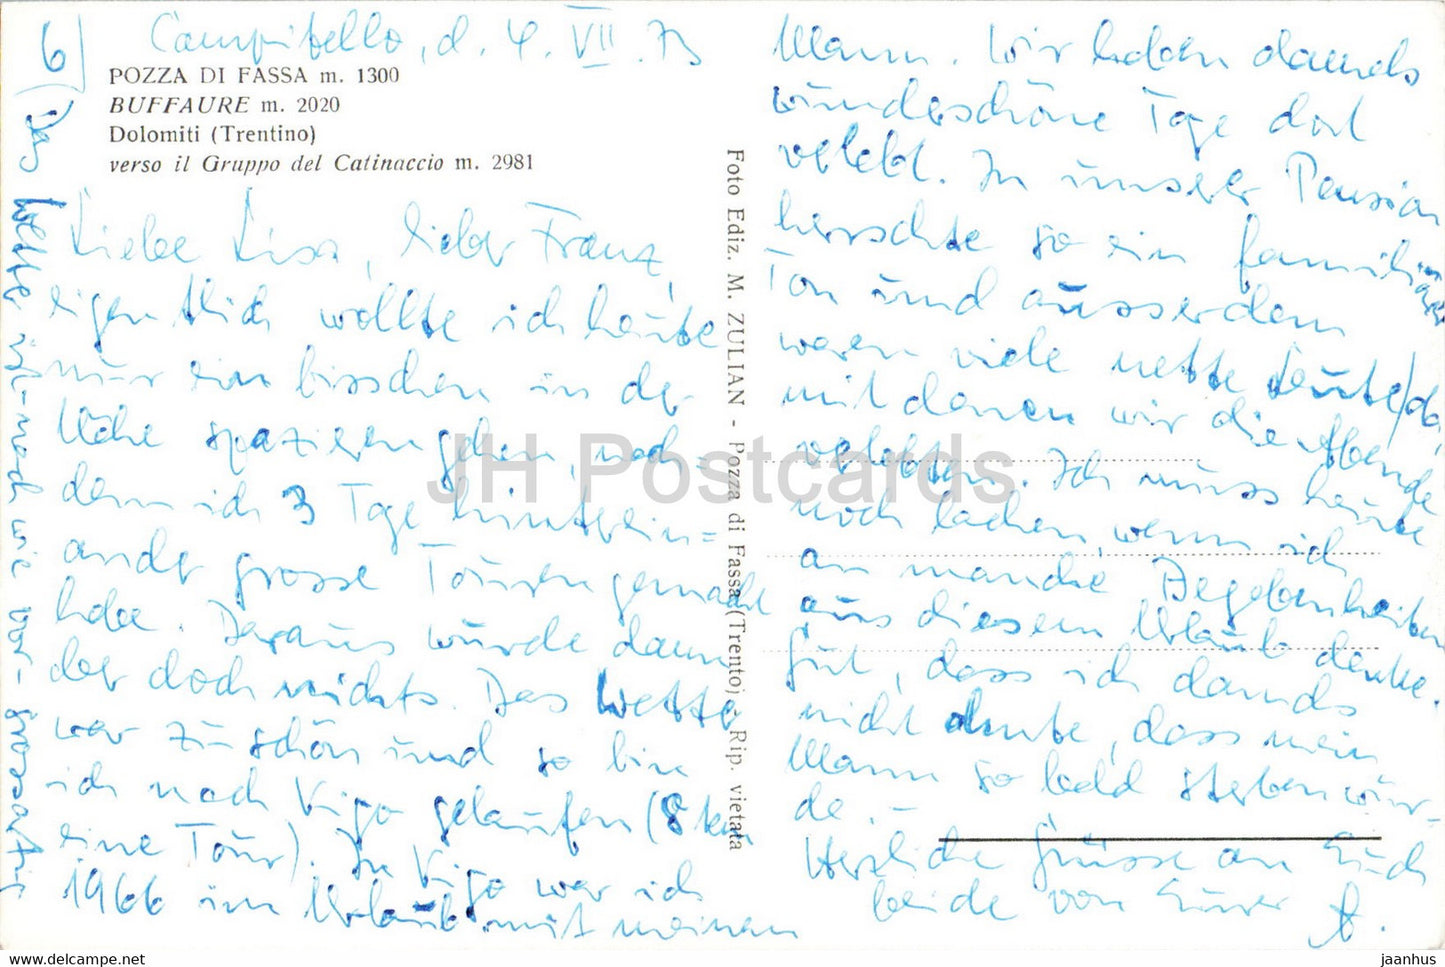 6)
Campitello, d. 4. VII. 73
POZZA DI FASSA m. 1300
BUFFAURE m. 2020
Dolomiti (Trentino)
verso il Gruppo del Catinaccio m. 2981
Liebe Lisa, lieber Franz,
eigentlich wollte ich heute
nur ein bisschen in der
Nähe spazieren gehen, nach=
dem ich 3 Tage hinterein=
ander grosse Touren gemacht
habe. Daraus wurde dann
aber doch nichts. Das Wetter
war zu schön und so bin
ich nach Vigo gelaufen (8 km
eine Tour). In Vigo war ich
1966 im Urlaub mit meinem
Mann. Wir haben damals
wunderschöne Tage dort
verlebt. In unserer Pension
herrschte so ein familiärer
Ton und ausserdem
waren viele nette Leute da,
mit denen wir die Abende
verlebten. Ich muss heute
noch lachen, wenn ich
an manche Begebenheiten
aus diesem Urlaub denke.
Gut, dass ich damals
nicht ahnte, dass mein
Mann so bald sterben wür-
de. -
Herzliche Grüsse an Euch
beide von Eurer A.
Das Wetter ist - nach wie vor - grossartig
Foto Ediz. M. ZULIAN - Pozza di Fassa (Trento) - Rip. vietata
JH Postcards
jaanhus